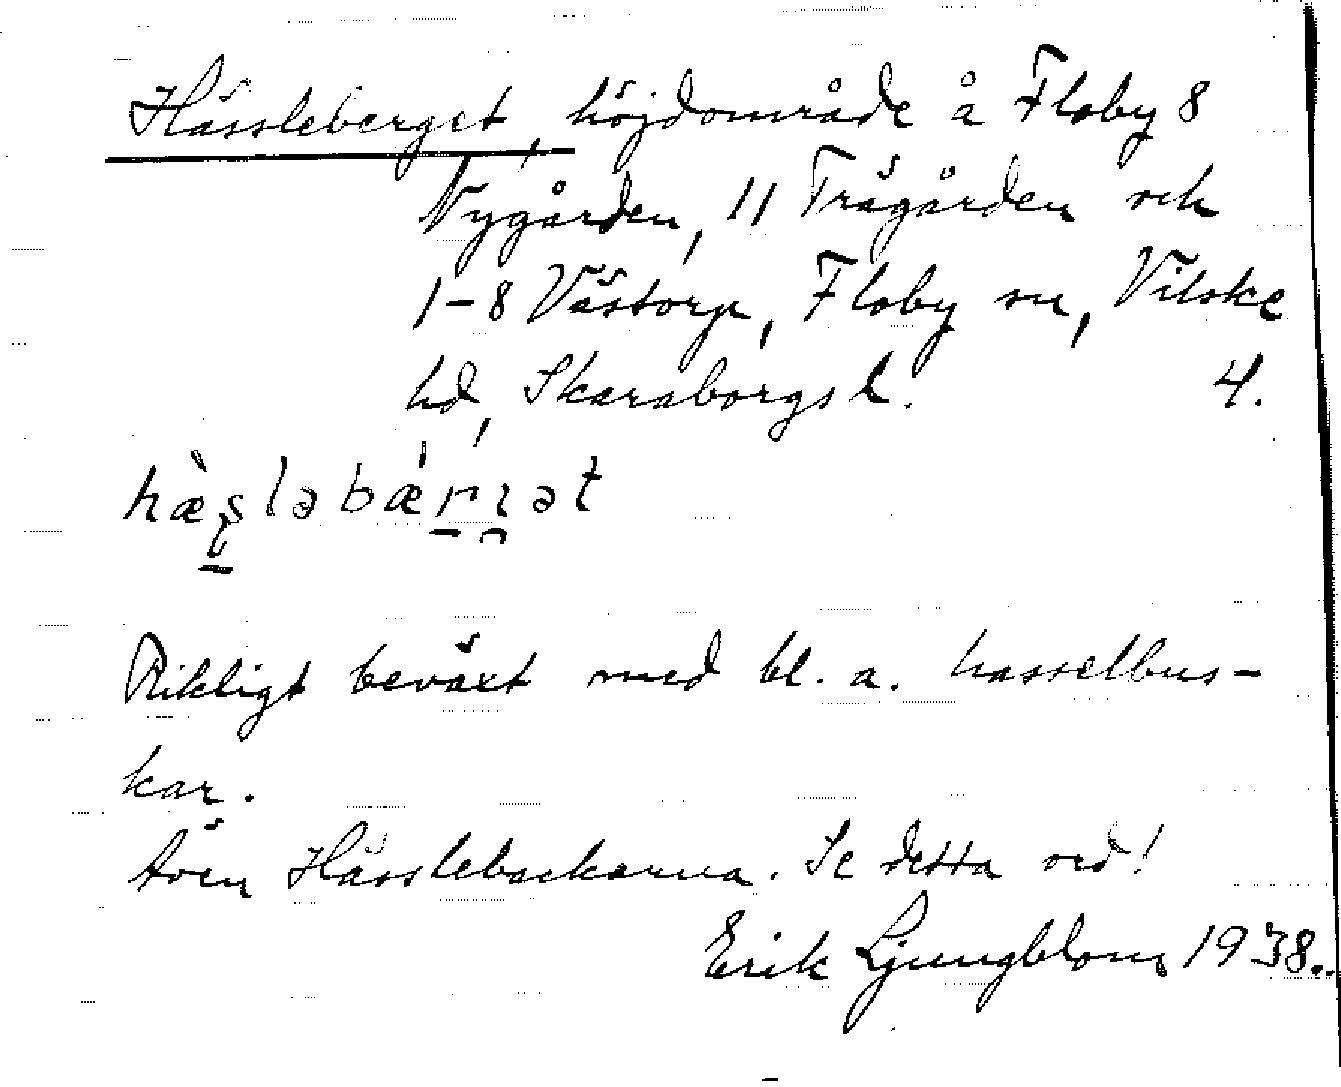 Hässleberget, höjdområde å Floby 8
Nygården, 11 Trägården och
1-8 Västorp, Floby sn, Vilske
hd, Skaraborgs l. 4.
hæ̀slabǽrɲət
Rikligt beväxt med bl. a. hasselbus-
kar.
Även Hässlebackarna. Se detta ord!
Erik Ljungblom 1938.